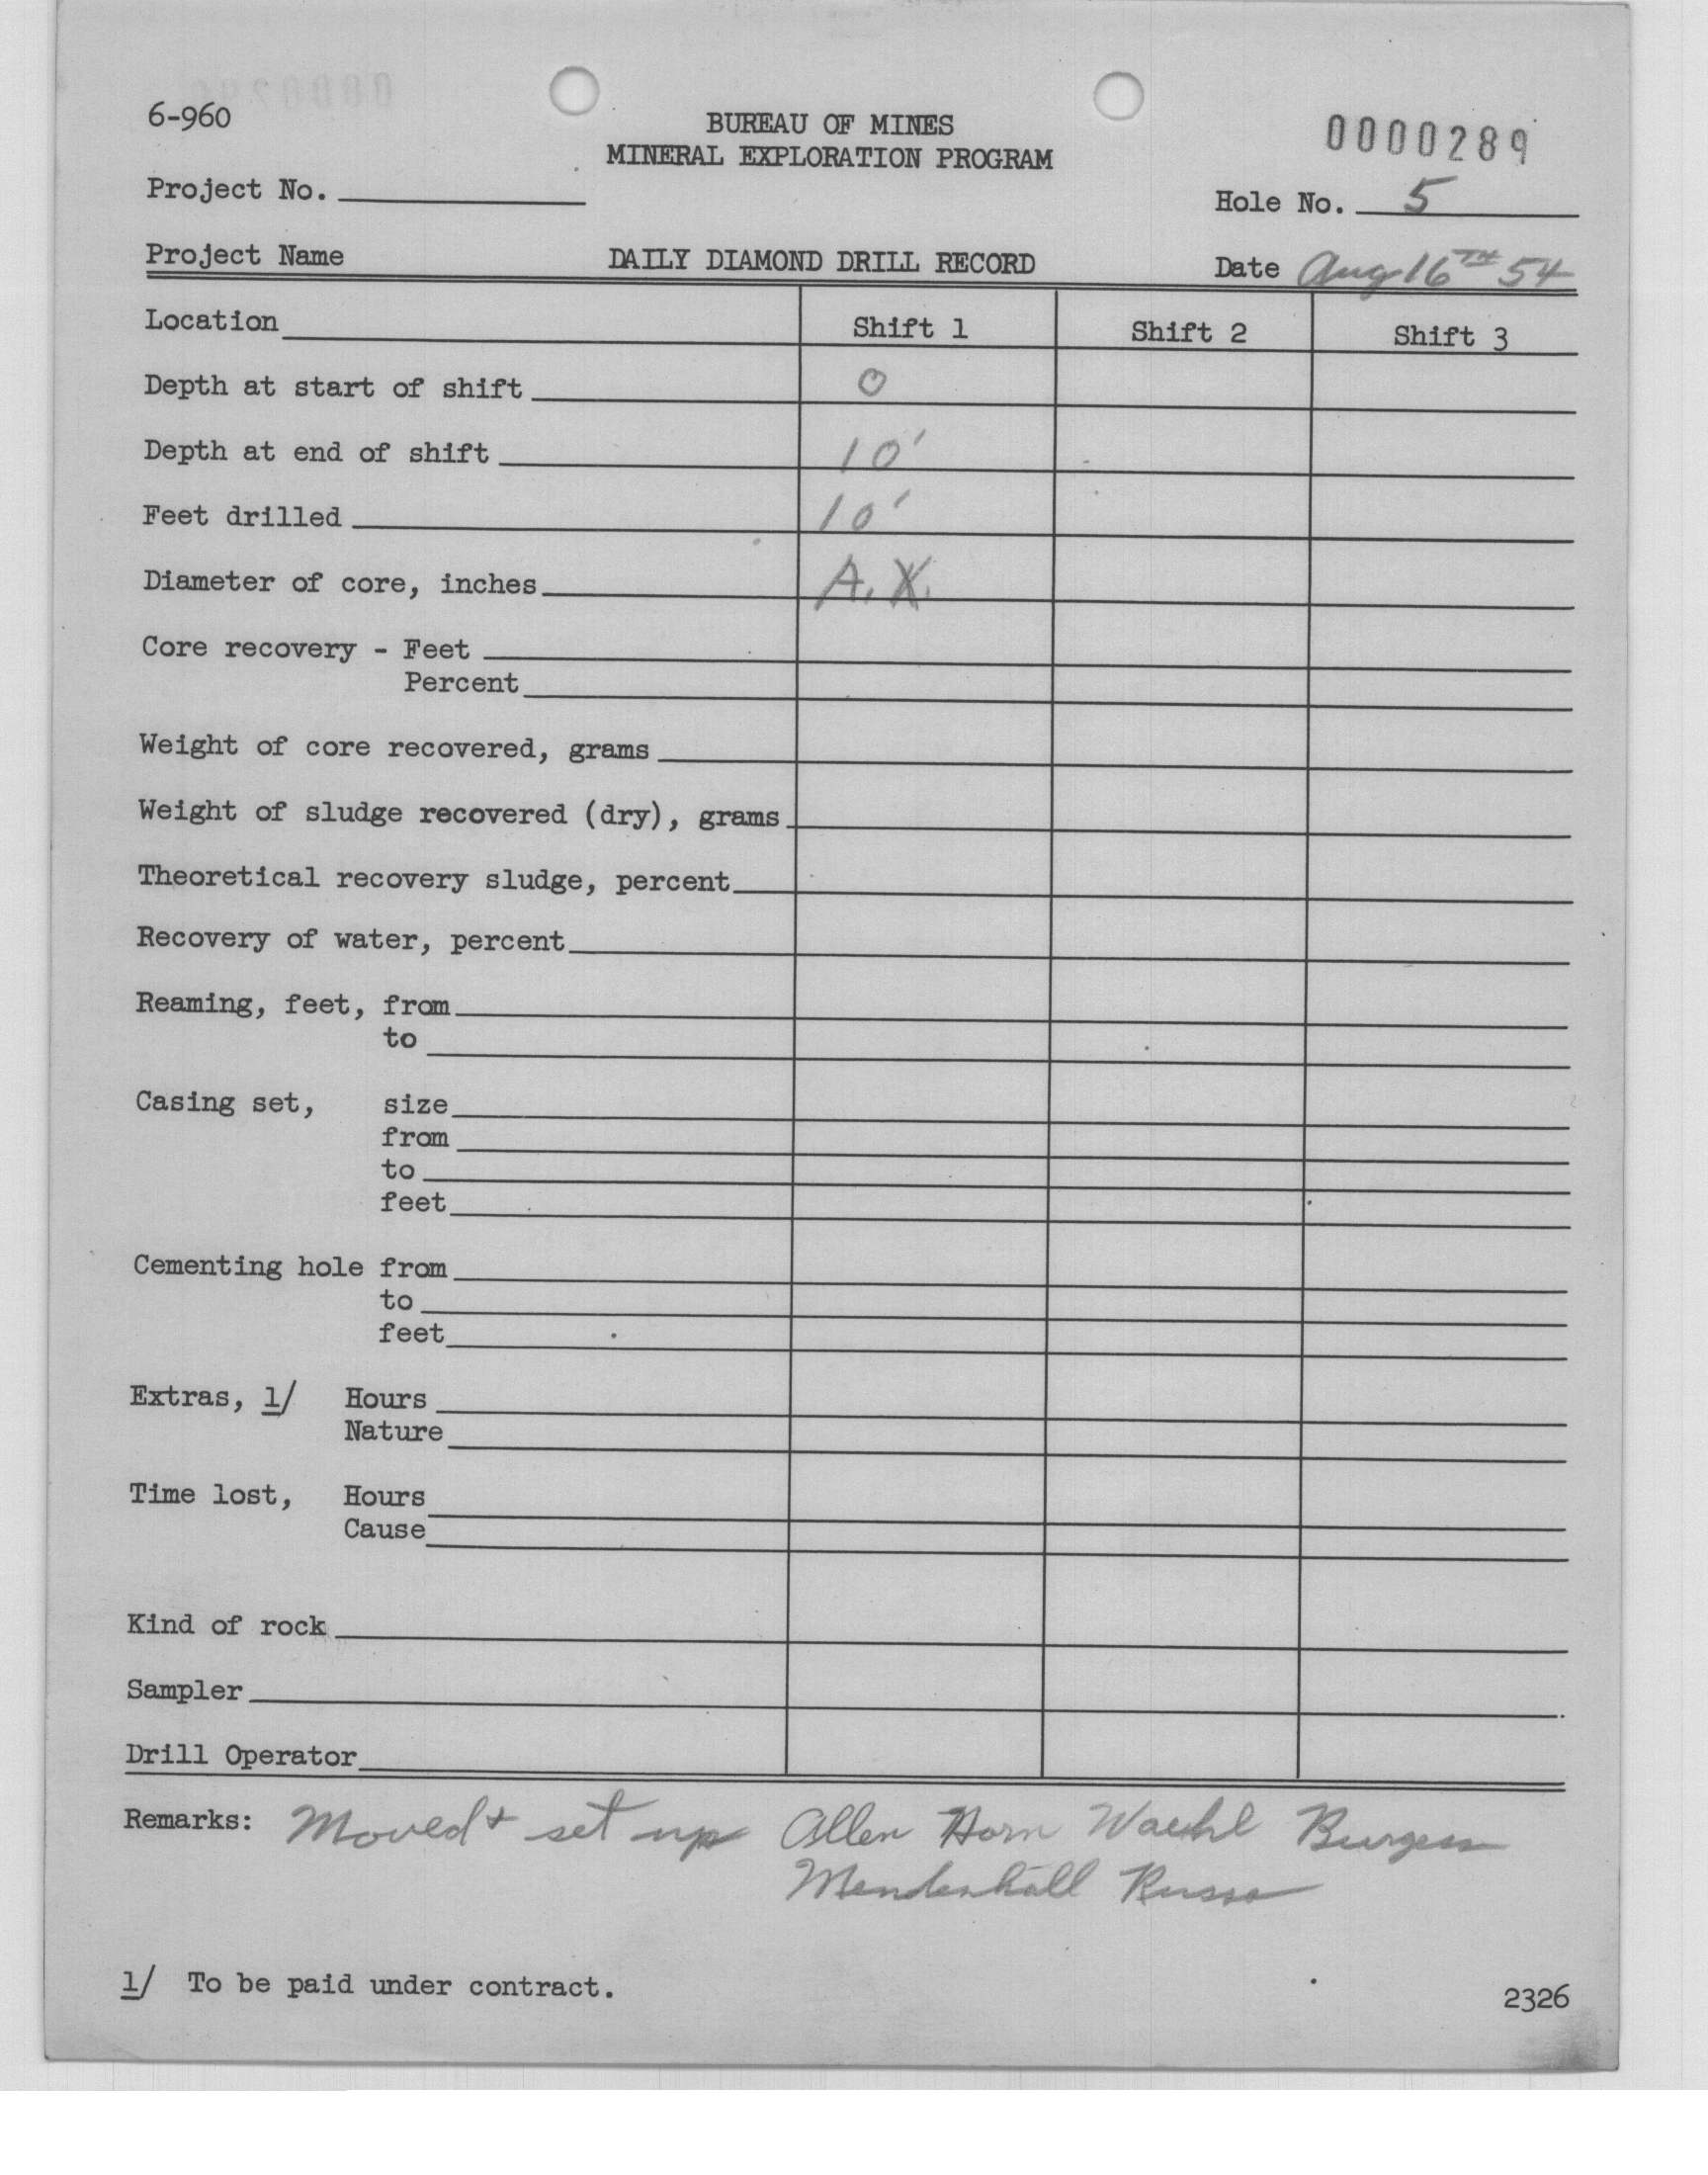 6-960
BUREAU OF MINES
MINERAL EXPLORATION PROGRAM
0000289
Project No.
Hole No. 5
Project Name DAILY DIAMOND DRILL RECORD Date Aug 16TH 54
Location Shift 1 Shift 2 Shift 3
Depth at start of shift 0
Depth at end of shift 10'
Feet drilled 10'
Diameter of core, inches A.X.
Core recovery - Feet
Percent
Weight of core recovered, grams
Weight of sludge recovered (dry), grams
Theoretical recovery sludge, percent
Recovery of water, percent
Reaming, feet, from
to
Casing set, size
from
to
feet
Cementing hole from
to
feet
Extras, 1/ Hours
Nature
Time lost, Hours
Cause
Kind of rock
Sampler
Drill Operator
Remarks: Moved + set up Allen Horn Waehl Burgess
Mendenhall Russo
1/ To be paid under contract.
2326